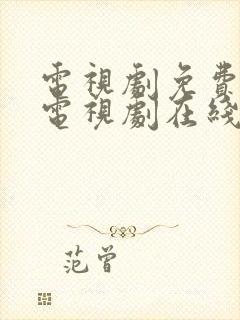 電視劇免費
電視劇在綫
范曾